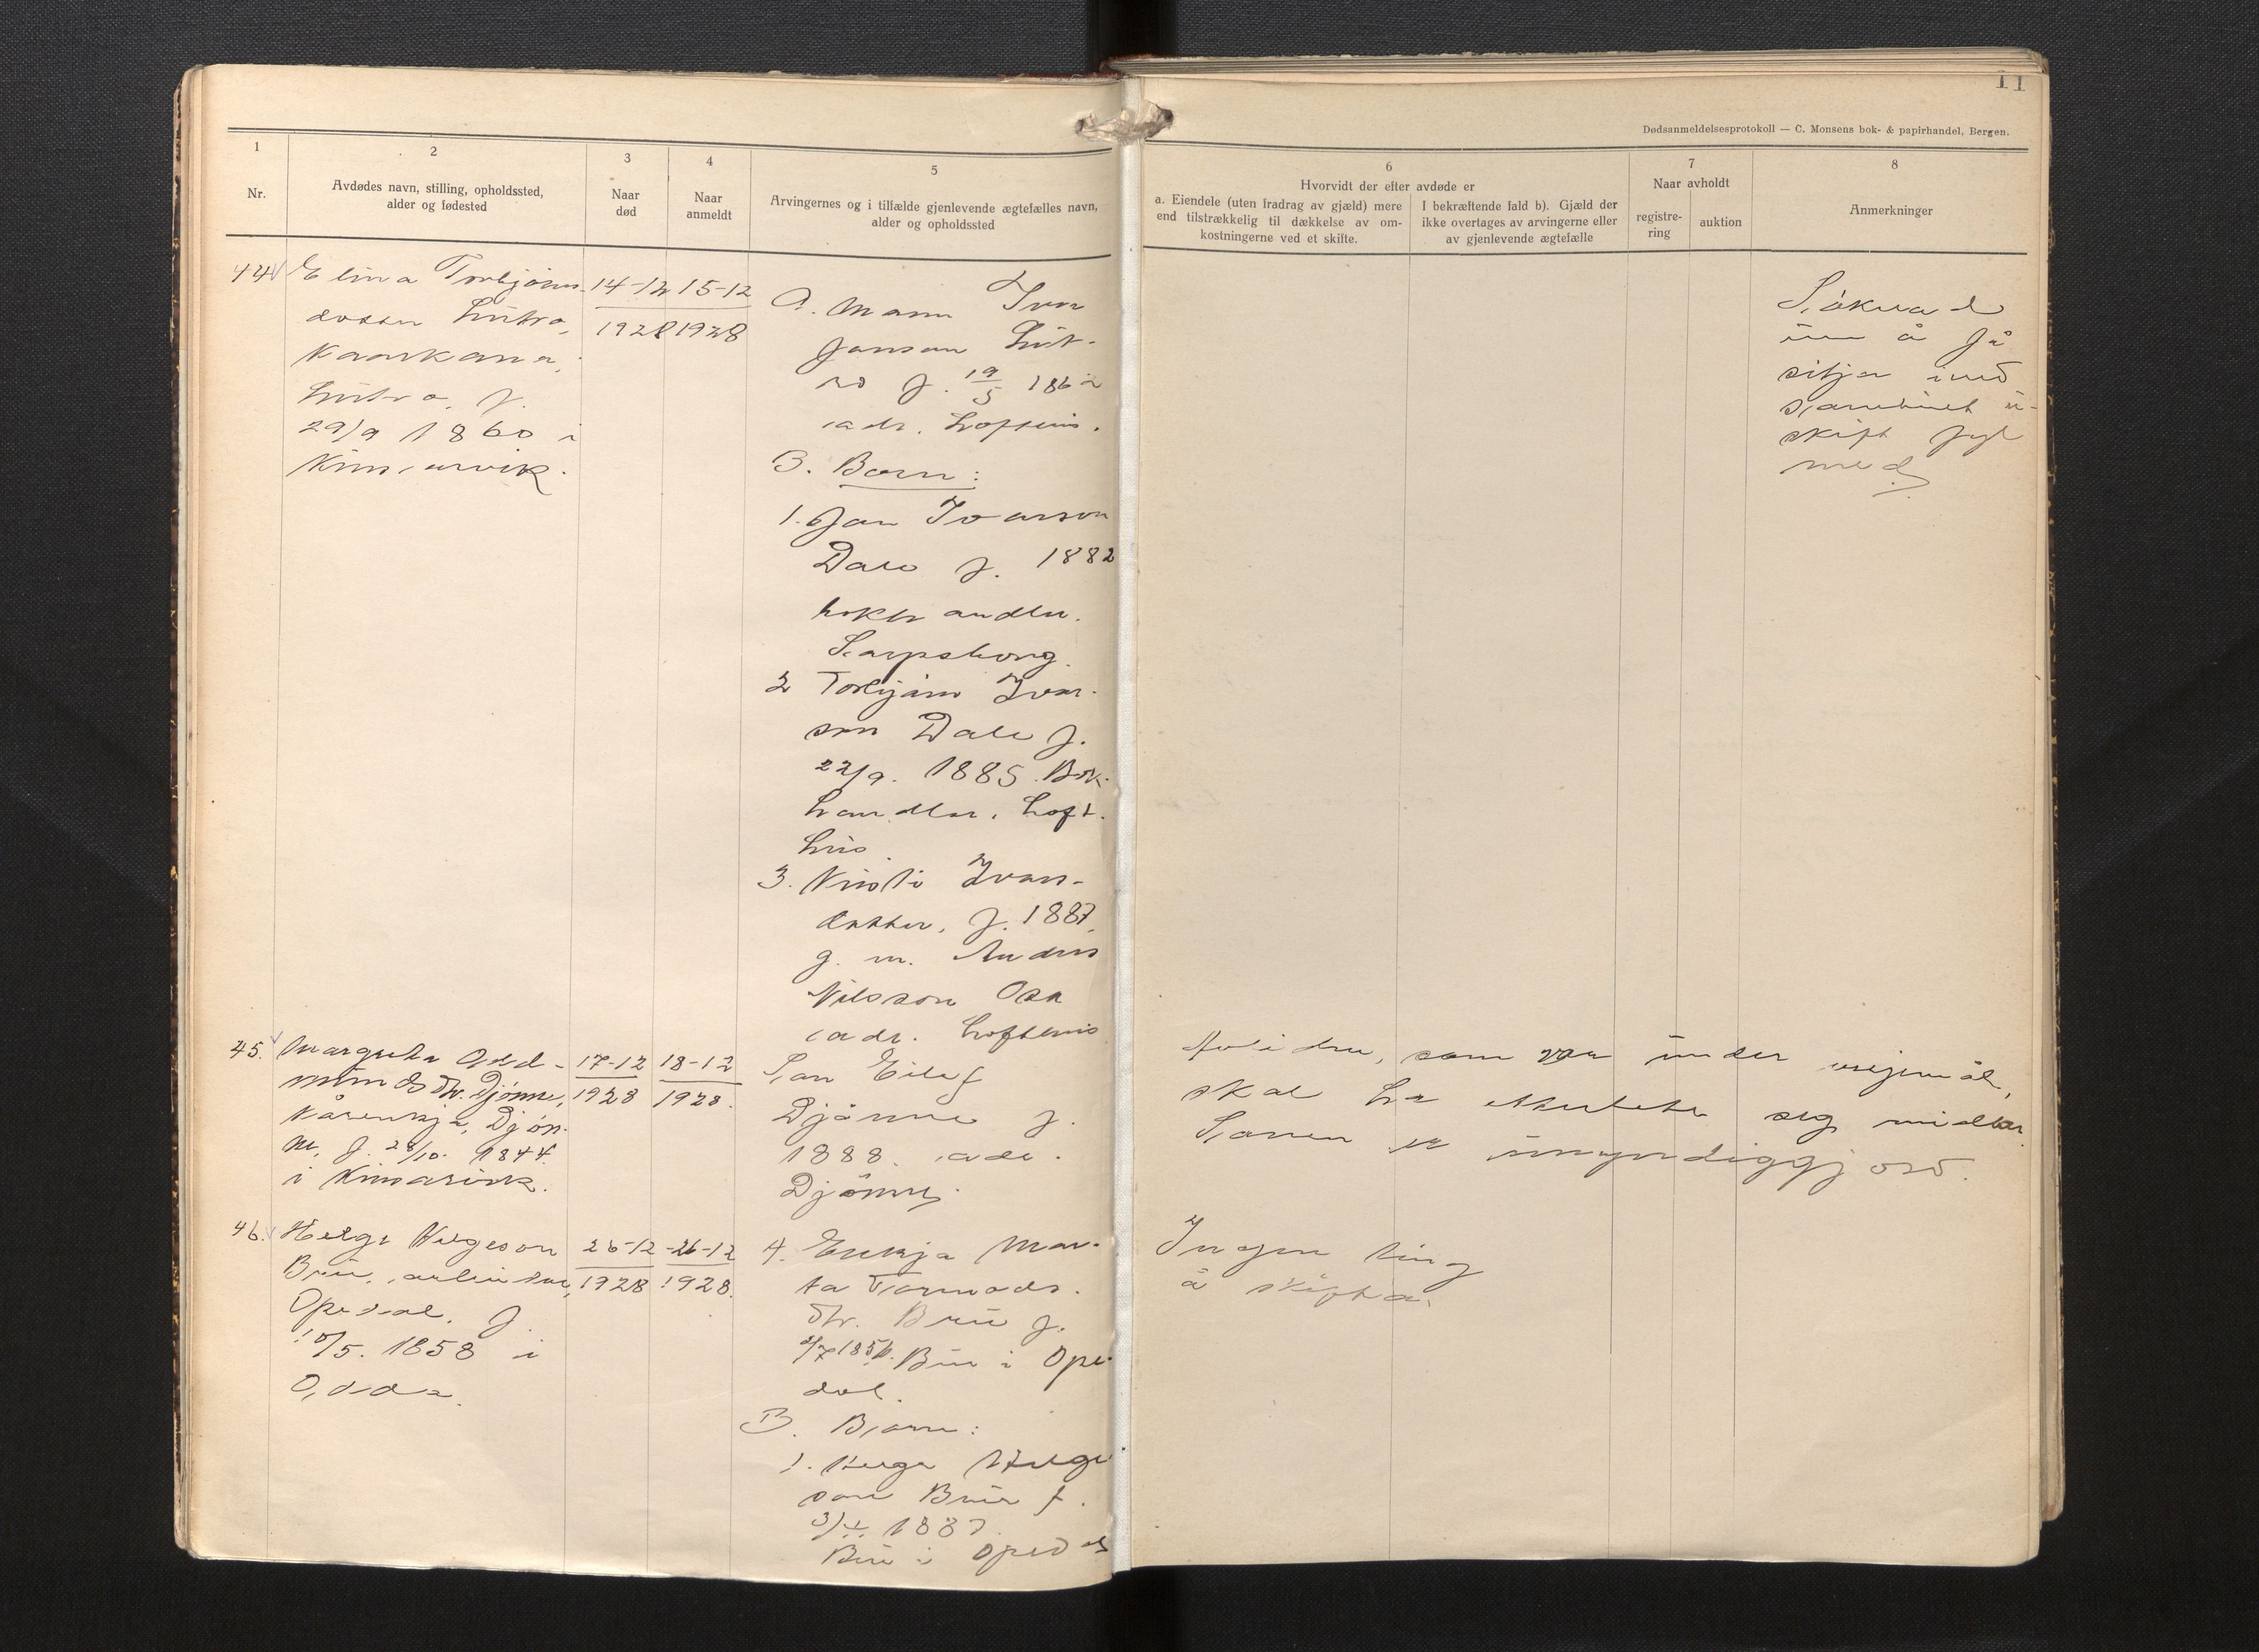 11
Dødsanmeldelsesprotokoll — C. Monsens bok- & papirhandel, Bergen.
1
Nr.
2
Avdødes navn, stilling, opholdssted,
alder og fødested
3
Naar
død
4
Naar
anmeldt
5
Arvingernes og i tilfælde gjenlevende ægtefælles navn,
alder og opholdssted
6
Hvorvidt der efter avdøde er
a. Eiendele (uten fradrag av gjæld) mere
end tilstrækkelig til dækkelse av om-
kostningerne ved et skifte.
I bekræftende fald b). Gjæld der
ikke overtages av arvingerne eller
av gjenlevende ægtefælle
7
Naar avholdt
registre-
ring
auktion
8
Anmerkninger
44
Elina Torbjørns-
dotter
Kaarkana,
f.
29/9 1860 i
Kinsarvik.
14-12
1928
15-12
1928
A. Mann Ivar
Janson
f. 19/5 186
adr. Lofthus.
B. Born:
1. Jan Ivarson
Dale f. 1882
bokhandlar.
Sarpsborg.
2 Torbjørn Ivar-
son Dale f.
22/9. 1885. Bok-
handlar, Loft-
hus.
3. Kristi Ivars-
dotter, f. 1887,
g. m. Anders
Nilsson Osa
adr. Lofthus
Søknad
um å få
sitja i
sameiret u-
skift fyl
med.
45.
Margreta Odd-
munds dtr. Djønne,
Kårenkja, Djøn-
ne, f. 28/10. 1844.
i Kinsarvik.
17-12
1928
18-12
1928.
Son Eilef
Djønne f.
1888. adr.
Djønne.
Avlidne, som var under verjemål,
skal ha etterlate seg midlar.
Sonen er umyndiggjord.
46.
Helge Helgeson
Bru, arbeidar,
Opedal. f.
10/5. 1858 i
Odda.
26-12
1928
26-12
1928.
A. Enkja Mar-
ta Tormods-
dtr. Bru f.
Bu i Ope-
dal.
B. Born:
1. Helge Helge
son Bru f.
3/4. 1887.
Bu i Opedal
Ingen ting
å skifta.